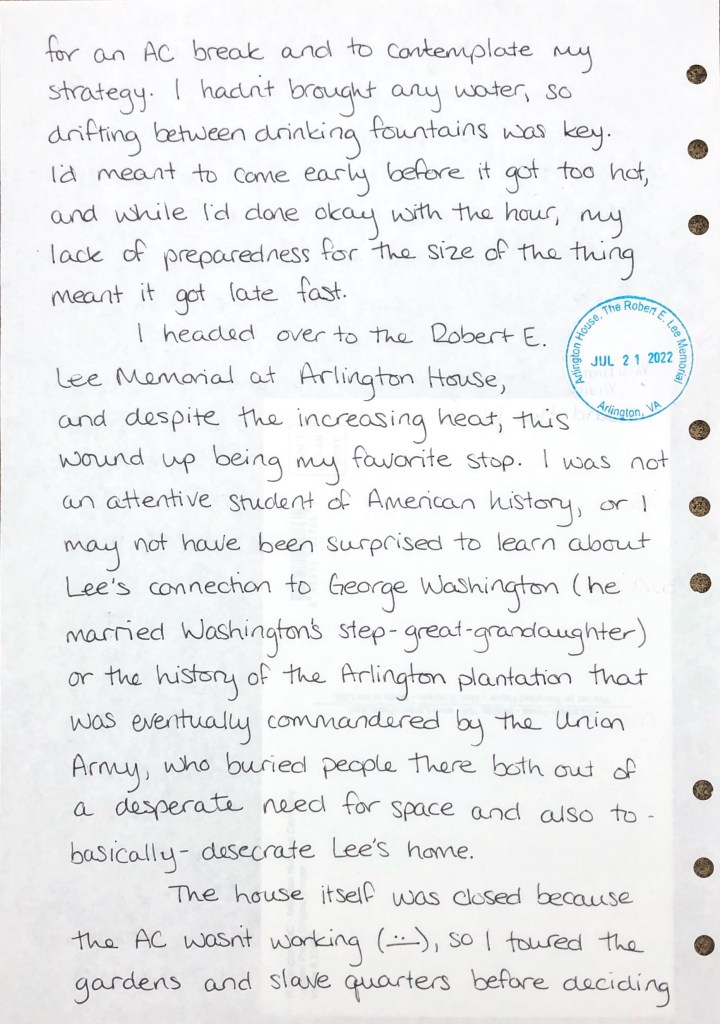 for an AC break and to contemplate my
strategy. I hadn't brought any water, so
drifting between drinking fountains was key.
I'd meant to come early before it got too hot,
and while I'd done okay with the hour, my
lack of preparedness for the size of the thing
meant it got late fast.
I headed over to the Robert E.
Lee Memorial at Arlington House,
and despite the increasing heat, this
wound up being my favorite stop. I was not
an attentive student of American history, or I
may not have been surprised to learn about
Lee's connection to George Washington (he
married Washington's step-great-grandaughter)
or the history of the Arlington plantation that
was eventually commandered by the Union
Army, who buried people there both out of
a desperate need for space and also to -
basically - desecrate Lee's home.
The house itself was closed because
the AC wasn't working (:-), so I toured the
gardens and slave quarters before deciding
Arlington House, The Robert E. Lee Memorial
JUL 21 2022
Arlington, VA